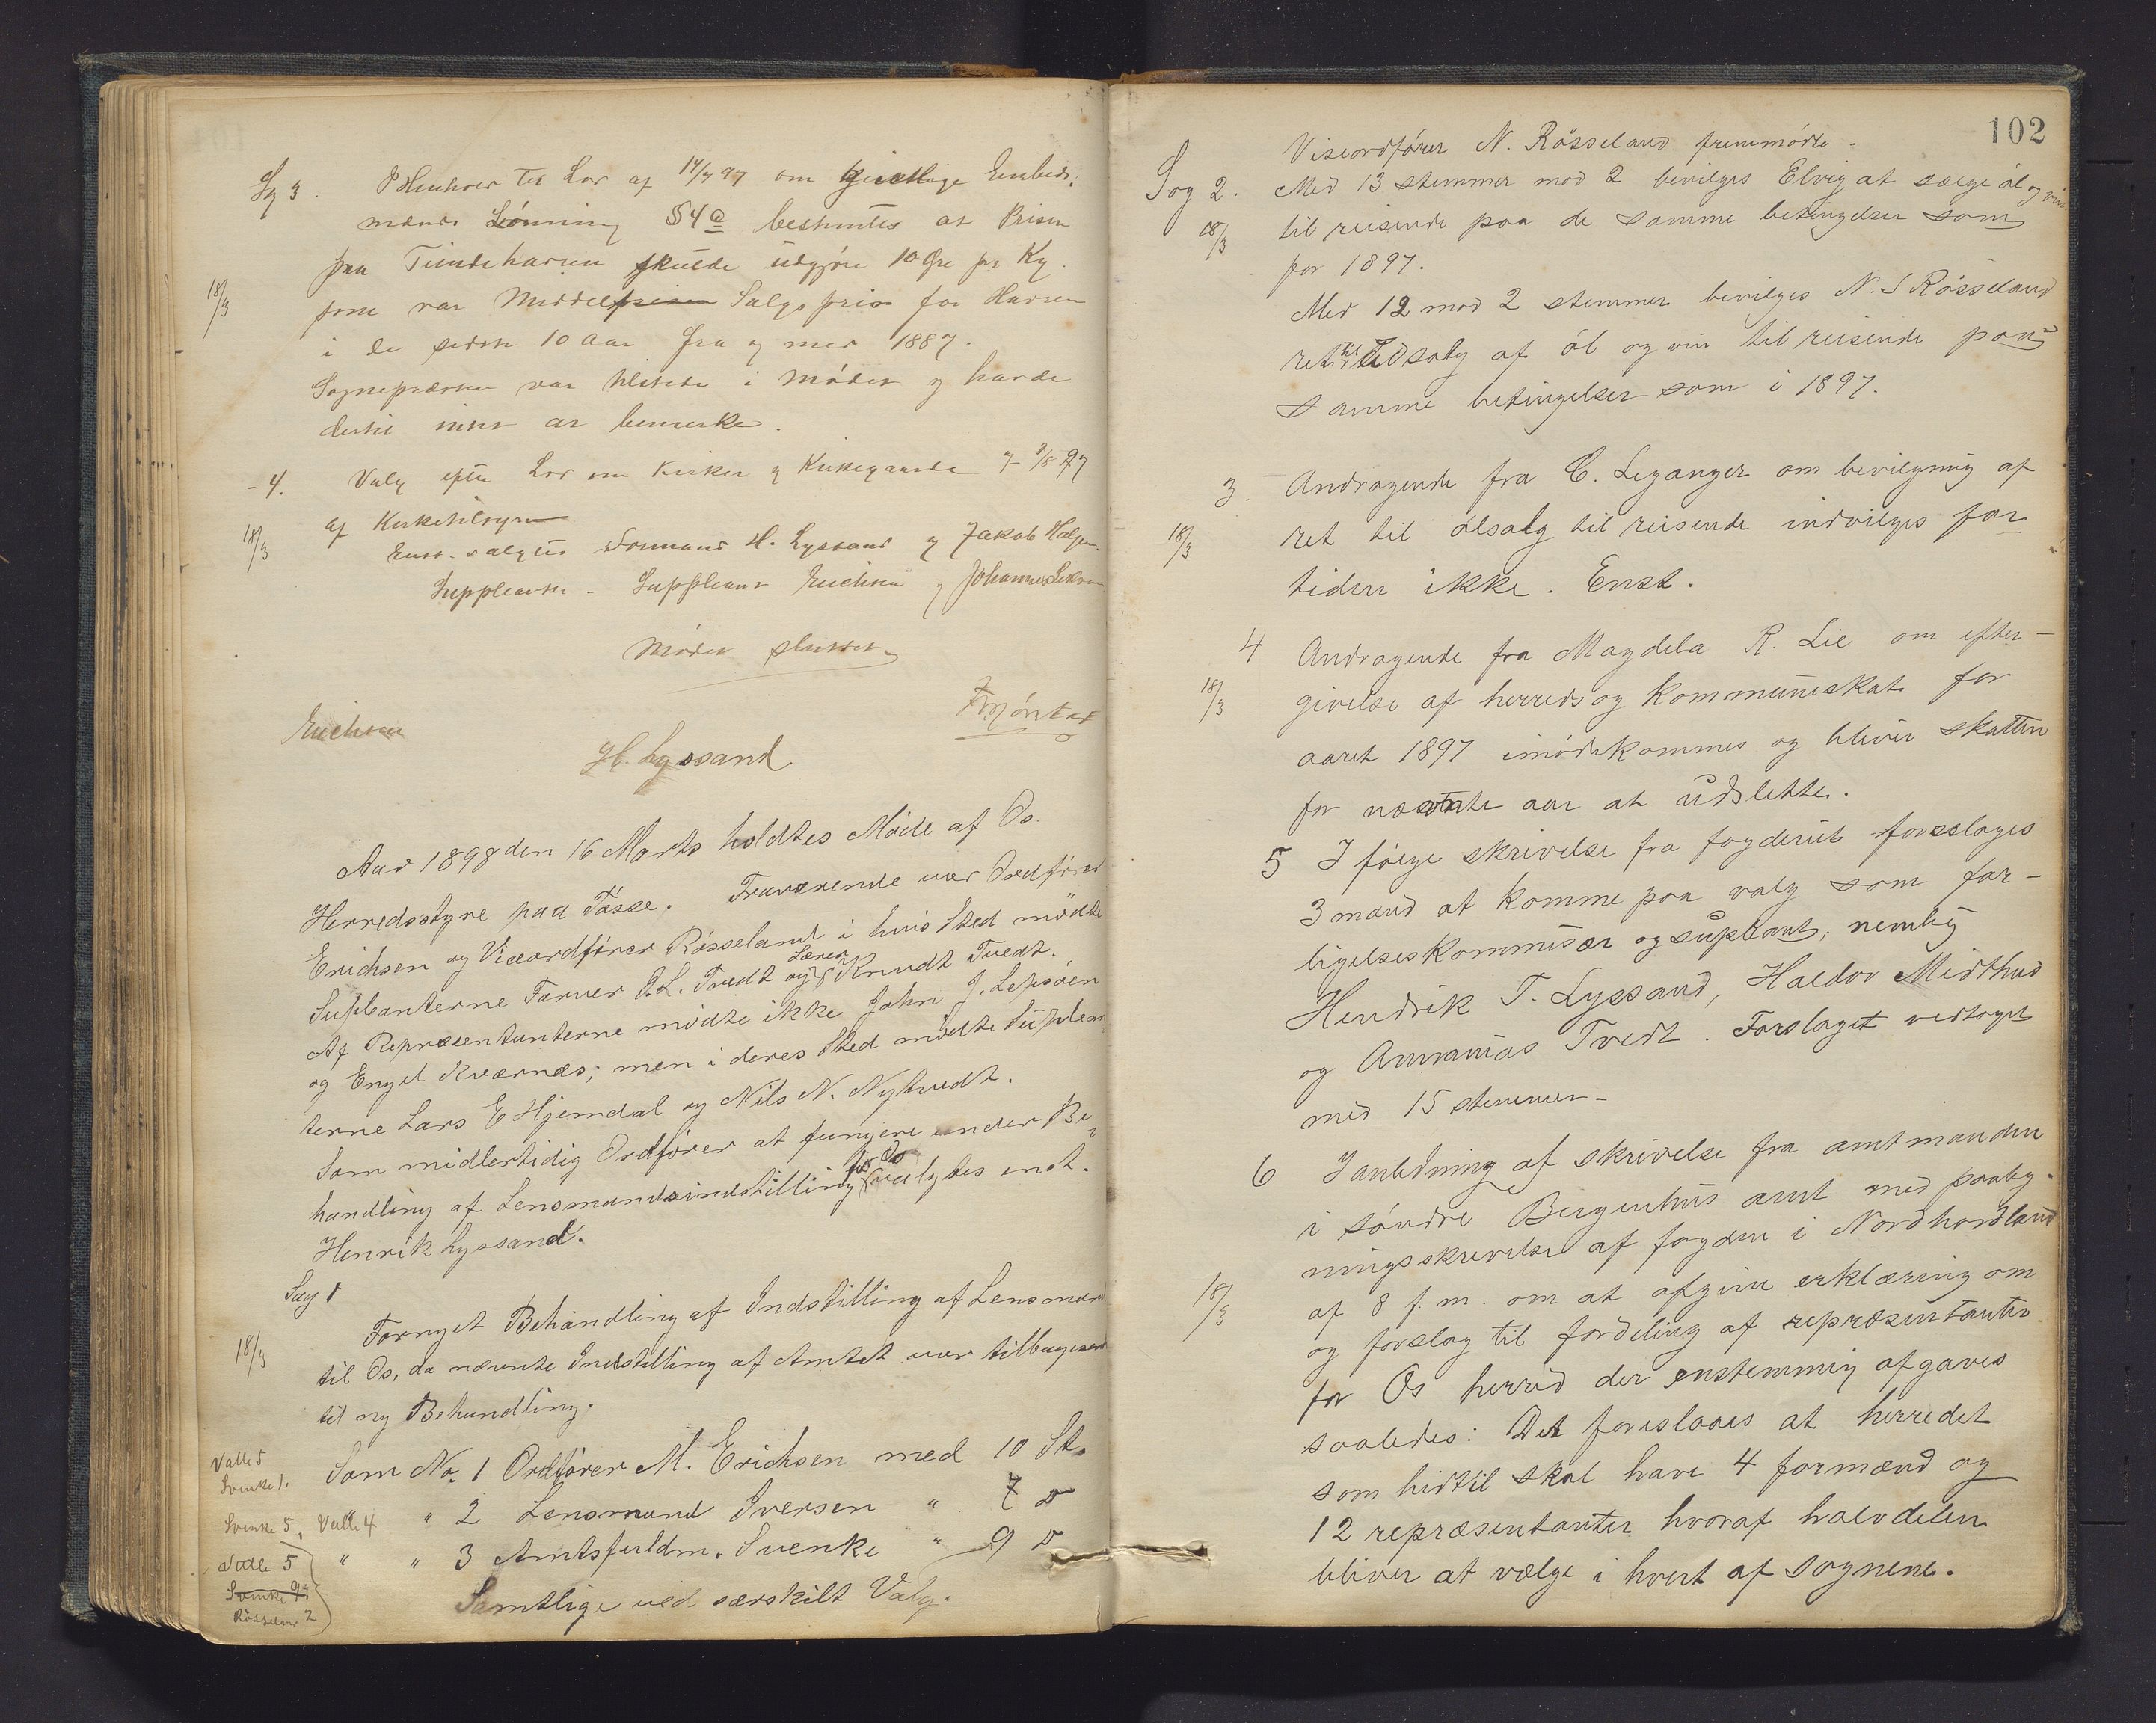 Sg 3. I Henhold til Lov af 14/7 97 om geistlige Embeds-
mænds Lønning § 4 c bestemtes at Prisen
paa Tiendehavren skulde udgjøre 10 Øre pr Kg.
18/3 som var Middel Salgspris for Havren
i de sidste 10 Aar fra og med 1887.
Sognepræsten var tilstede i Mødet og havde
dertil intet at bemerke.
- 4. Valg efter Lov om Kirker og Kirkegaarde 3/8 97
af Kirketilsyn
18/3 Enst. valgtes Formand H. Lyssand og Jakob
Suppleanter - Suppleant Erichsen og Johannes
Mødet sluttet
Erichsen
H. Lyssand
Aar 1898 den 16 Marts holdtes Møde af Os
Herredsstyre paa Tøsse. Fraværende var Ordfører
Erichsen og Viceordfører Røsseland i hvis Sted mødte
Supleanterne Farver O. L. Tvedt og Lærer Knudt Tvedt.
Af Repræsentanterne mødte ikke John J. Lepsøen
og Engel Kværnæs; men i deres Sted mødte Suplean-
terne Lars E Hjemdal og Nils N. Nytvedt.
Som midlertidig Ordfører at fungere under Be-
handling af Lensmandsindstilling for Os valgtes enst.
Henrik Lyssand.
Sag 1
18/3 Fornyet Behandling af Indstilling af Lensmand
til Os, da nævnte Indstilling af Amtet var tilbagesend
til ny Behandling.
Valle 5
Svenke 1.
Som No. 1 Ordfører M. Erichsen med 10 St.
Svenke 5, Valle 4 " " 2 Lensmand Iversen " 7 "
Valle 5
Svenke 9
Røsseland 2
" " 3 Amtsfuldm. Svenke " 9 "
Samtlige ved særskilt Valg.
102
Viseordfører N. Røsseland fremmødte.
Sag 2. Med 13 stemmer mod 2 bevilges Elvig at sælge øl og vin
18/3 til reisende paa de samme betingelser som
for 1897.
Med 12 mod 2 stemmer bevilges N. S Røsseland
ret til Udsalg af øl og vin til reisende paa
samme betingelser som i 1897.
3. Andragende fra C. Leganger om bevilgning af
18/3 ret til ølsalg til reisende indvilges for
tiden ikke. Enst.
4 Andragende fra Magdela R. Lie om efter-
18/3 givelse af herreds og Kommuneskat for
aaret 1897 imødekommes og bliver skatten
for nævnte aar at udslette.
5 I følge skrivelse fra fogderiet foreslages
3 mand at komme paa valg som for-
ligelseskommisær og suplant, nemlig
Hendrik T. Lyssand, Haldor Midthus
og Annanias Tvedt. Forslaget vedtaget
med 15 stemmer -
6 I anledning af skrivelse fra amtmanden
i søndre Bergenhus amt med paateg-
ningsskrivelse af fogden i Nordhordland
18/3 af 8 f. m. om at afgive erklæring om
og forslag til fordeling af repræsentanter
for Os herred der enstemmig afgaves
saaledes: Det foreslaaes at herredet
som hidtil skal have 4 formænd og
12 repræsentanter hvoraf halvdelen
bliver at vælge i hvert af sognene.